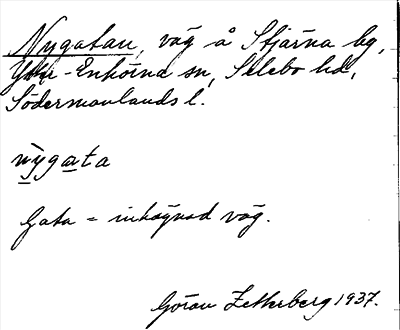 Nygatan, väg å Stjärna hg,
Ytter-Enhörna sn, Selebo hd,
Södermanlands l.
nỳgata
Gata = inhägnad väg.
Göran Zetterberg 1937.